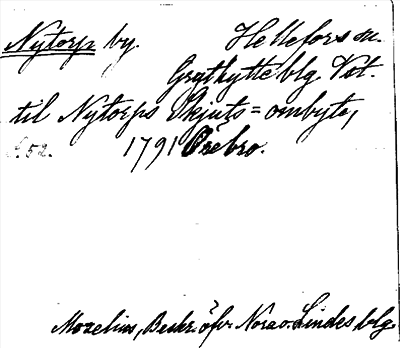 Nytorp by. Hellefors sn.
Grythytte blg Vst.
til Nytorps Skjuts=ombyte,
s. 52. 1791 Örebro.
Mozelius, Beskr. öfv. Nora o. Lindes blg.